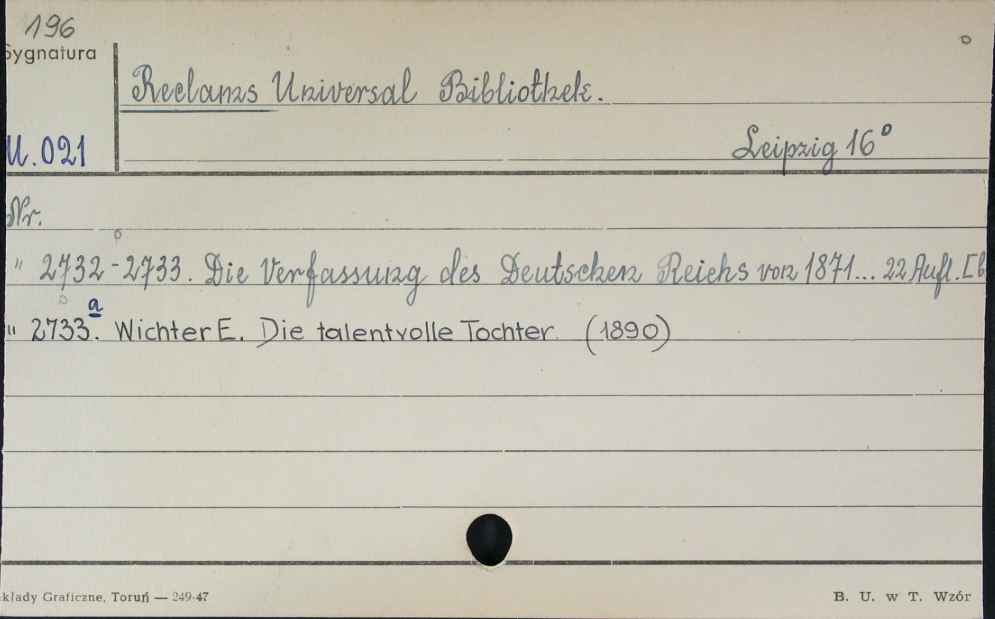 196
Sygnatura
Reclams Universal Bibliothek.
U. 021
Leipzig 16°
Nr.
" 2732-2733. Die Verfassung des Deutschen Reichs von 1871... 22 Aufl. [b
" 2733.a Wichter E. Die talentvolle Tochter. (1890)
kłady Graficzne, Toruń — 249-47
B. U. w T. Wzór